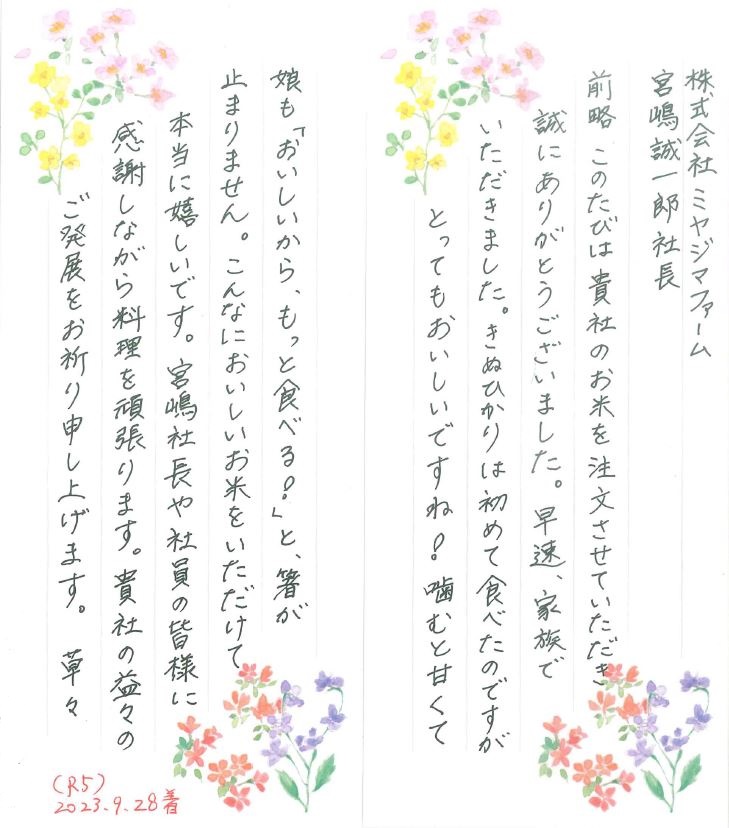 株式会社 ミヤジマファーム
宮嶋誠一郎社長
前略 このたびは貴社のお米を注文させていただき
誠にありがとうございました。早速、家族で
いただきました。きぬひかりは初めて食べたのですが
とってもおいしいですね!噛むと甘くて
娘も「おいしいから、もっと食べる!」と、箸が
止まりません。こんなにおいしいお米をいただけて
本当に嬉しいです。宮嶋社長や社員の皆様に
感謝しながら料理を頑張ります。貴社の益々の
ご発展をお祈り申し上げます。 草々
(R5)
2023.9.28着